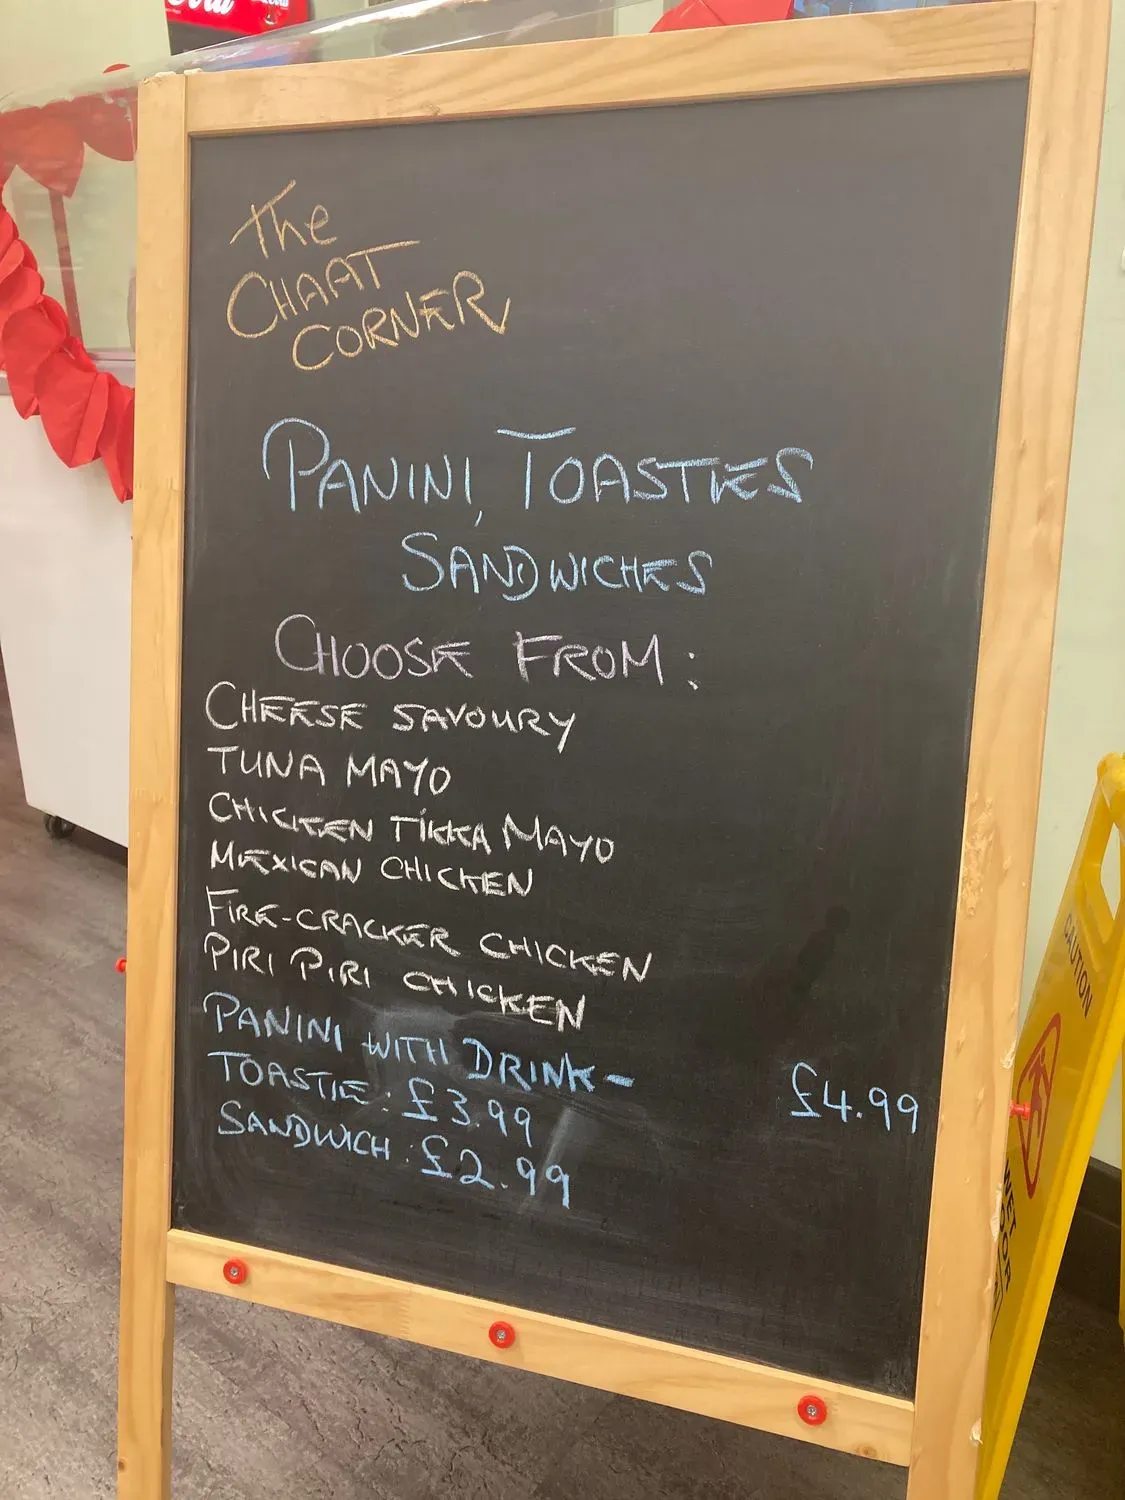 The
CHAAT
CORNER
PANINI, TOASTIES
SANDWICHES
CHOOSE FROM:
CHEESE SAVOURY
TUNA MAYO
CHICKEN TIKKA MAYO
MEXICAN CHICKEN
FIRE-CRACKER CHICKEN
PIRI PIRI CHICKEN
PANINI WITH DRINK- £4.99
TOASTIE: £3.99
SANDWICH: £2.99
CAUTION
WET
FLOOR